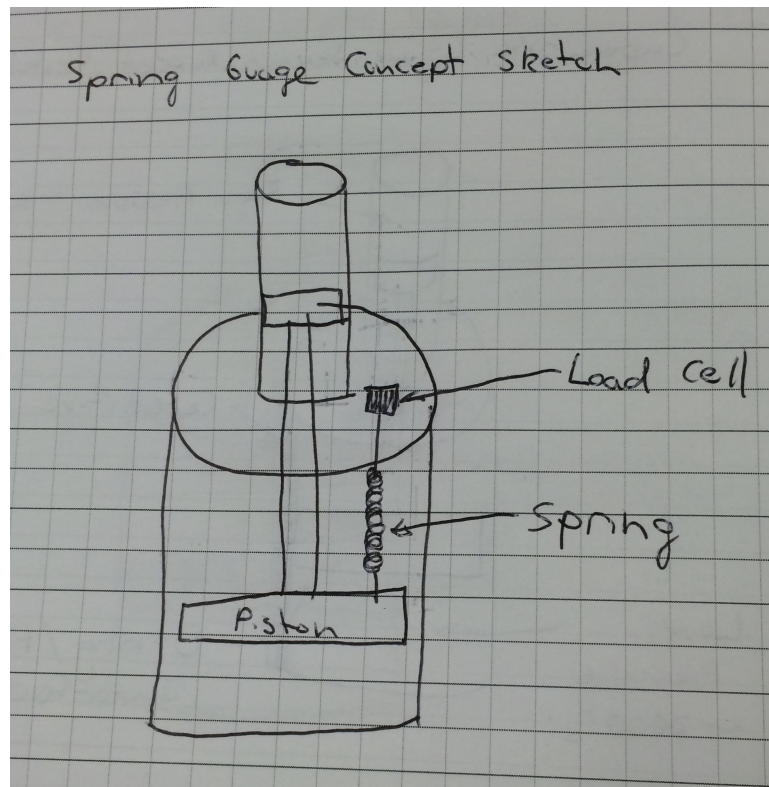 Spring Guage Concept Sketch
Load Cell
Spring
Piston